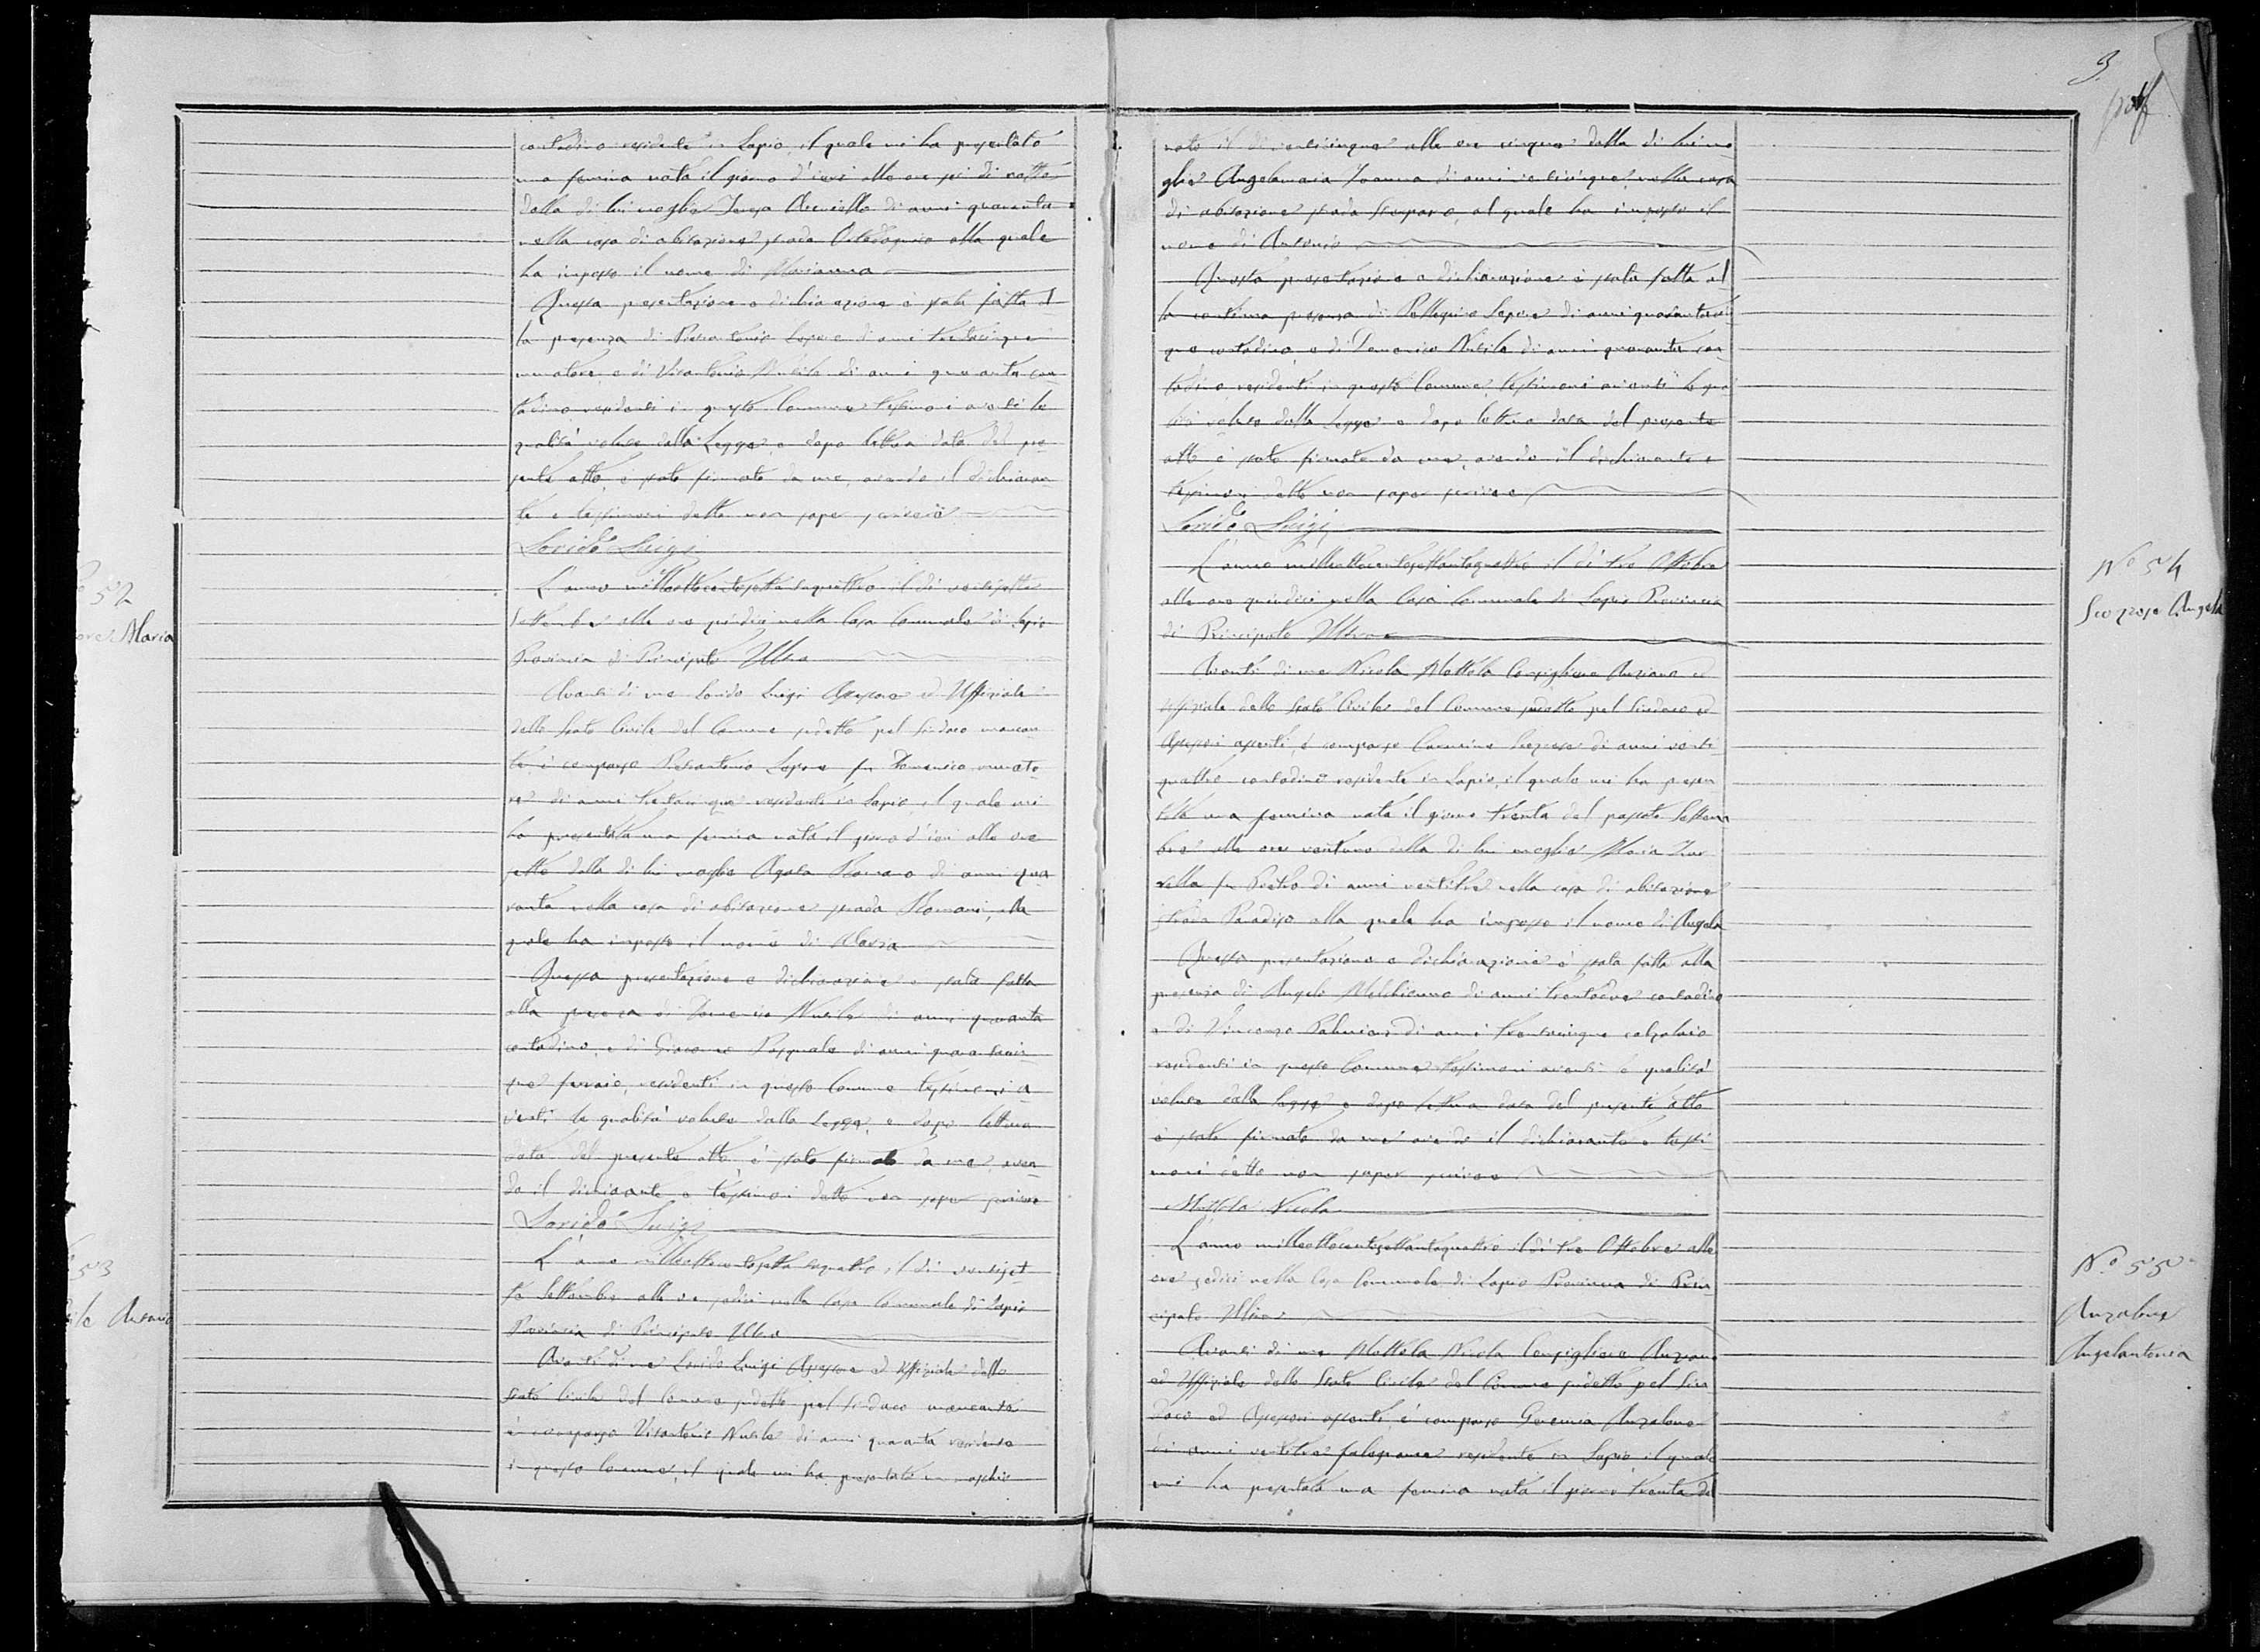 contadino residente in Lapio, il quale mi ha presentato
una femina nata il giorno d'ieri alle ore sei di notte
dalla di lui moglie Teresa di anni quaranta
nella casa di abitazione strada alla quale
ha imposto il nome di Marianna
Questa presentazione e dichiarazione è stata fatta al
la presenza di Pierantonio Lepore di anni trentacinque
muratore, e di Vitantonio Nubile di anni quaranta con
tadino residenti in questo Comune testimoni aventi le
qualità volute dalla Legge, e dopo lettura data del pre
sente atto, è stato firmato da me, avendo il dichiaran
te e testimoni detto non saper scrivere
Lorido Luigi
No 52
Lepore Maria
L'anno milleottocentosettantaquattro il dì ventisette
Settembre alle ore quindici nella Casa Comunale di Lapio
Provincia di Principato Ultra
Avanti di me Lorido Luigi Assessore ed Uffiziale
dello Stato Civile del Comune sudetto pel Sindaco mancan
te, è comparso Pierantonio Lepore fu Domenico murato
re di anni trentacinque residente in Lapio, il quale mi
ha presentata una femina nata il giorno d'ieri alle ore
sette dalla di lui moglie Agata Romano di anni qua
ranta nella casa di abitazione strada Romani, alla
quale ha imposto il nome di Maria
Questa presentazione e dichiarazione è stata fatta
alla presenza di Domenico Nubile di anni quaranta
contadino, e di Giacomo Pasquale di anni quarantacin
que ferraio, residenti in questo Comune testimoni a
venti le qualità volute dalla Legge, e dopo lettura
data del presente atto è stato firmato da me, aven
do il dichiarante e testimoni detto non saper scrivere
Lorido Luigi
No 53
Nubile Antonio
L'anno milleottocentosettantaquattro, il dì ventiset
te Settembre alle ore sedici nella Casa Comunale di Lapio
Provincia di Principato Ultra
Avanti di me Lorido Luigi Assessore ed Uffiziale dello
Stato Civile del Comune sudetto pel Sindaco mancante
è comparso Vitantonio Nubile di anni quaranta residente
in questo Comune, il quale mi ha presentato un maschio
3
nato il dì venticinque alle ore cinque dalla di lui mo
glie Angelamaria Ioanna di anni venticinque, nella casa
di abitazione strada al quale ha imposto il
nome di Antonio
Questa presentazione e dichiarazione è stata fatta al
la continua presenza di Pellegrino Lepore di anni quarantacin
que contadino, e di Domenico Nubile di anni quaranta con
tadino residenti in questo Comune, testimoni aventi le qua
lità volute dalla Legge e dopo lettura data del presente
atto è stato firmato da me, avendo il dichiarante e
testimoni detto non saper scrivere
Lorido Luigi
No 54
Scozzese Angela
L'anno milleottocentosettantaquattro il dì tre Ottobre
alle ore quindici nella Casa Comunale di Lapio Provincia
di Principato Ultra
Avanti di me Nicola Mottola Consigliere Anziano ed
Uffiziale dello Stato Civile del Comune sudetto pel Sindaco ed
Assessori assenti, è comparso Carmine Scozzese di anni venti
quattro contadino residente in Lapio, il quale mi ha presen
tata una femina nata il giorno trenta del passato Settem
bre alle ore ventuno dalla di lui moglie Maria
fu Pietro di anni ventitre nella casa di abitazione
strada Paradiso alla quale ha imposto il nome di Angela
Questa presentazione e dichiarazione è stata fatta alla
presenza di Angelo Melchionne di anni trentadue contadino
e di Vincenzo di anni trentacinque calzolaio
residenti in questo Comune testimoni aventi le qualità
volute dalla Legge e dopo lettura data del presente atto
è stato firmato da me avendo il dichiarante e testi
moni detto non saper scrivere
Mottola Nicola
No 55
Anzalone
Angelantonia
L'anno milleottocentosettantaquattro il dì tre Ottobre alle
ore sedici nella Casa Comunale di Lapio Provincia di Prin
cipato Ultra
Avanti di me Mottola Nicola Consigliere Anziano
ed Uffiziale dello Stato Civile del Comune sudetto pel Sin
daco ed Assessori assenti, è comparso Geremia Anzalone
di anni ventitre falegname residente in Lapio il quale
mi ha presentata una femina nata il giorno trenta del